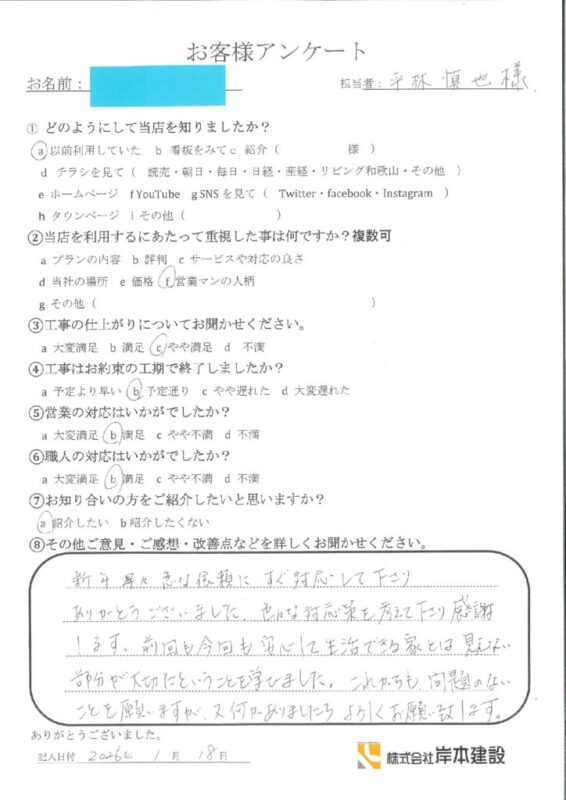 お客様アンケート
お名前： 担当者：平林 慎也 様
① どのようにして当店を知りましたか？
a 以前利用していた b 看板をみて c 紹介（ 様 ）
d チラシを見て（ 読売・朝日・毎日・日経・産経・リビング和歌山・その他 ）
e ホームページ f YouTube g SNSを見て（ Twitter・facebook・Instagram ）
h タウンページ i その他（ ）
②当店を利用するにあたって重視した事は何ですか？複数可
a プランの内容 b 評判 c サービスや対応の良さ
d 当社の場所 e 価格 f 営業マンの人柄
g その他（ ）
③工事の仕上がりについてお聞かせください。
a 大変満足 b 満足 c やや満足 d 不満
④工事はお約束の工期で終了しましたか？
a 予定より早い b 予定通り c やや遅れた d 大変遅れた
⑤営業の対応はいかがでしたか？
a 大変満足 b 満足 c やや不満 d 不満
⑥職人の対応はいかがでしたか？
a 大変満足 b 満足 c やや不満 d 不満
⑦お知り合いの方をご紹介したいと思いますか？
a 紹介したい b 紹介したくない
⑧その他ご意見・ご感想・改善点などを詳しくお聞かせください。
新年早々急な依頼にすぐ対応して下さり
ありがとうございました。色々な対応策を考えて下さり感謝
します。前回も今回も安心して生活できる家とは見えない
部分が大切だということを学びました。これからも問題のない
ことを願いますが、又何かありましたらよろしくお願い致します。
ありがとうございました。
記入日付 2026年 1月 18日
株式会社 岸本建設